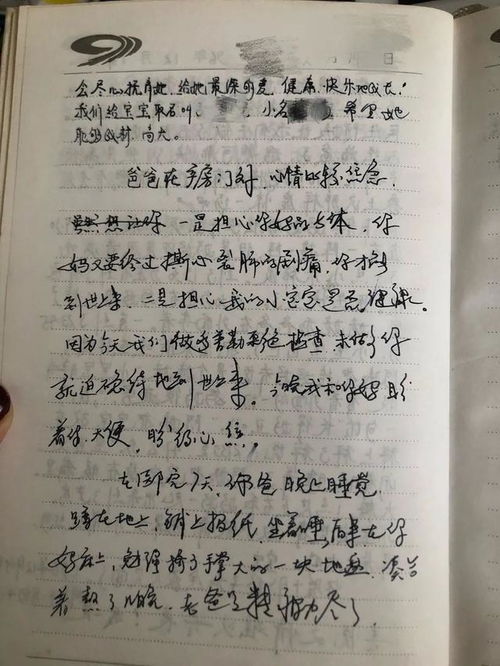 会尽心抚育她,给她最深的爱,健康、快乐地成长!
我们给宝宝取名叫 小名 希望她
能够 高大。
爸爸在产房门外,心情比较焦急,
虽然想让你 一是担心你妈的身体,你
妈又要经过撕心裂肺的剧痛,你才
到世上来,二是担心我的小宝宝是否健康。
因为今天我们做 检查,未 你
就迫不及待地到世上来。今晚我和你妈盼
着你大便,盼 心焦。
在医院7天,你爸晚上睡觉,
在地上,铺上报纸,坐着睡,后来在你
妈床上,勉强 手掌大的一块地盘,凑合
着熬了几晚,老爸 精疲力尽了。